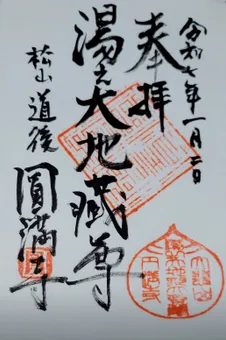 令和七年一月二日
奉拝
湯之大地蔵尊
松山 道後
圓満寺